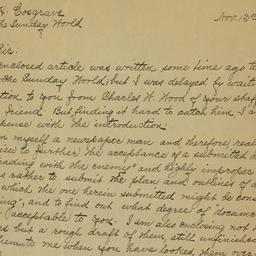 H. Cosgrave
The Sunday World
Nov. 13th
Sir:
enclosed article was written some time ago to
The Sunday World, but I was delayed by wait
ction to you from Charles W. Wood of your staff
friend. But finding it hard to catch him, I a
pense with the introduction.
am myself a newspaper man and therefore real
ice to further the acceptance of a submitted
eading with the enemy" and highly improper
is rather to submit the plan and outlines of a
which the one herein submitted might be cons
ing", and to find out what degree of docume
acceptable to you. I am also enclosing not
es but a rough draft of them, still unfinishe
hem to me when you have looked them over